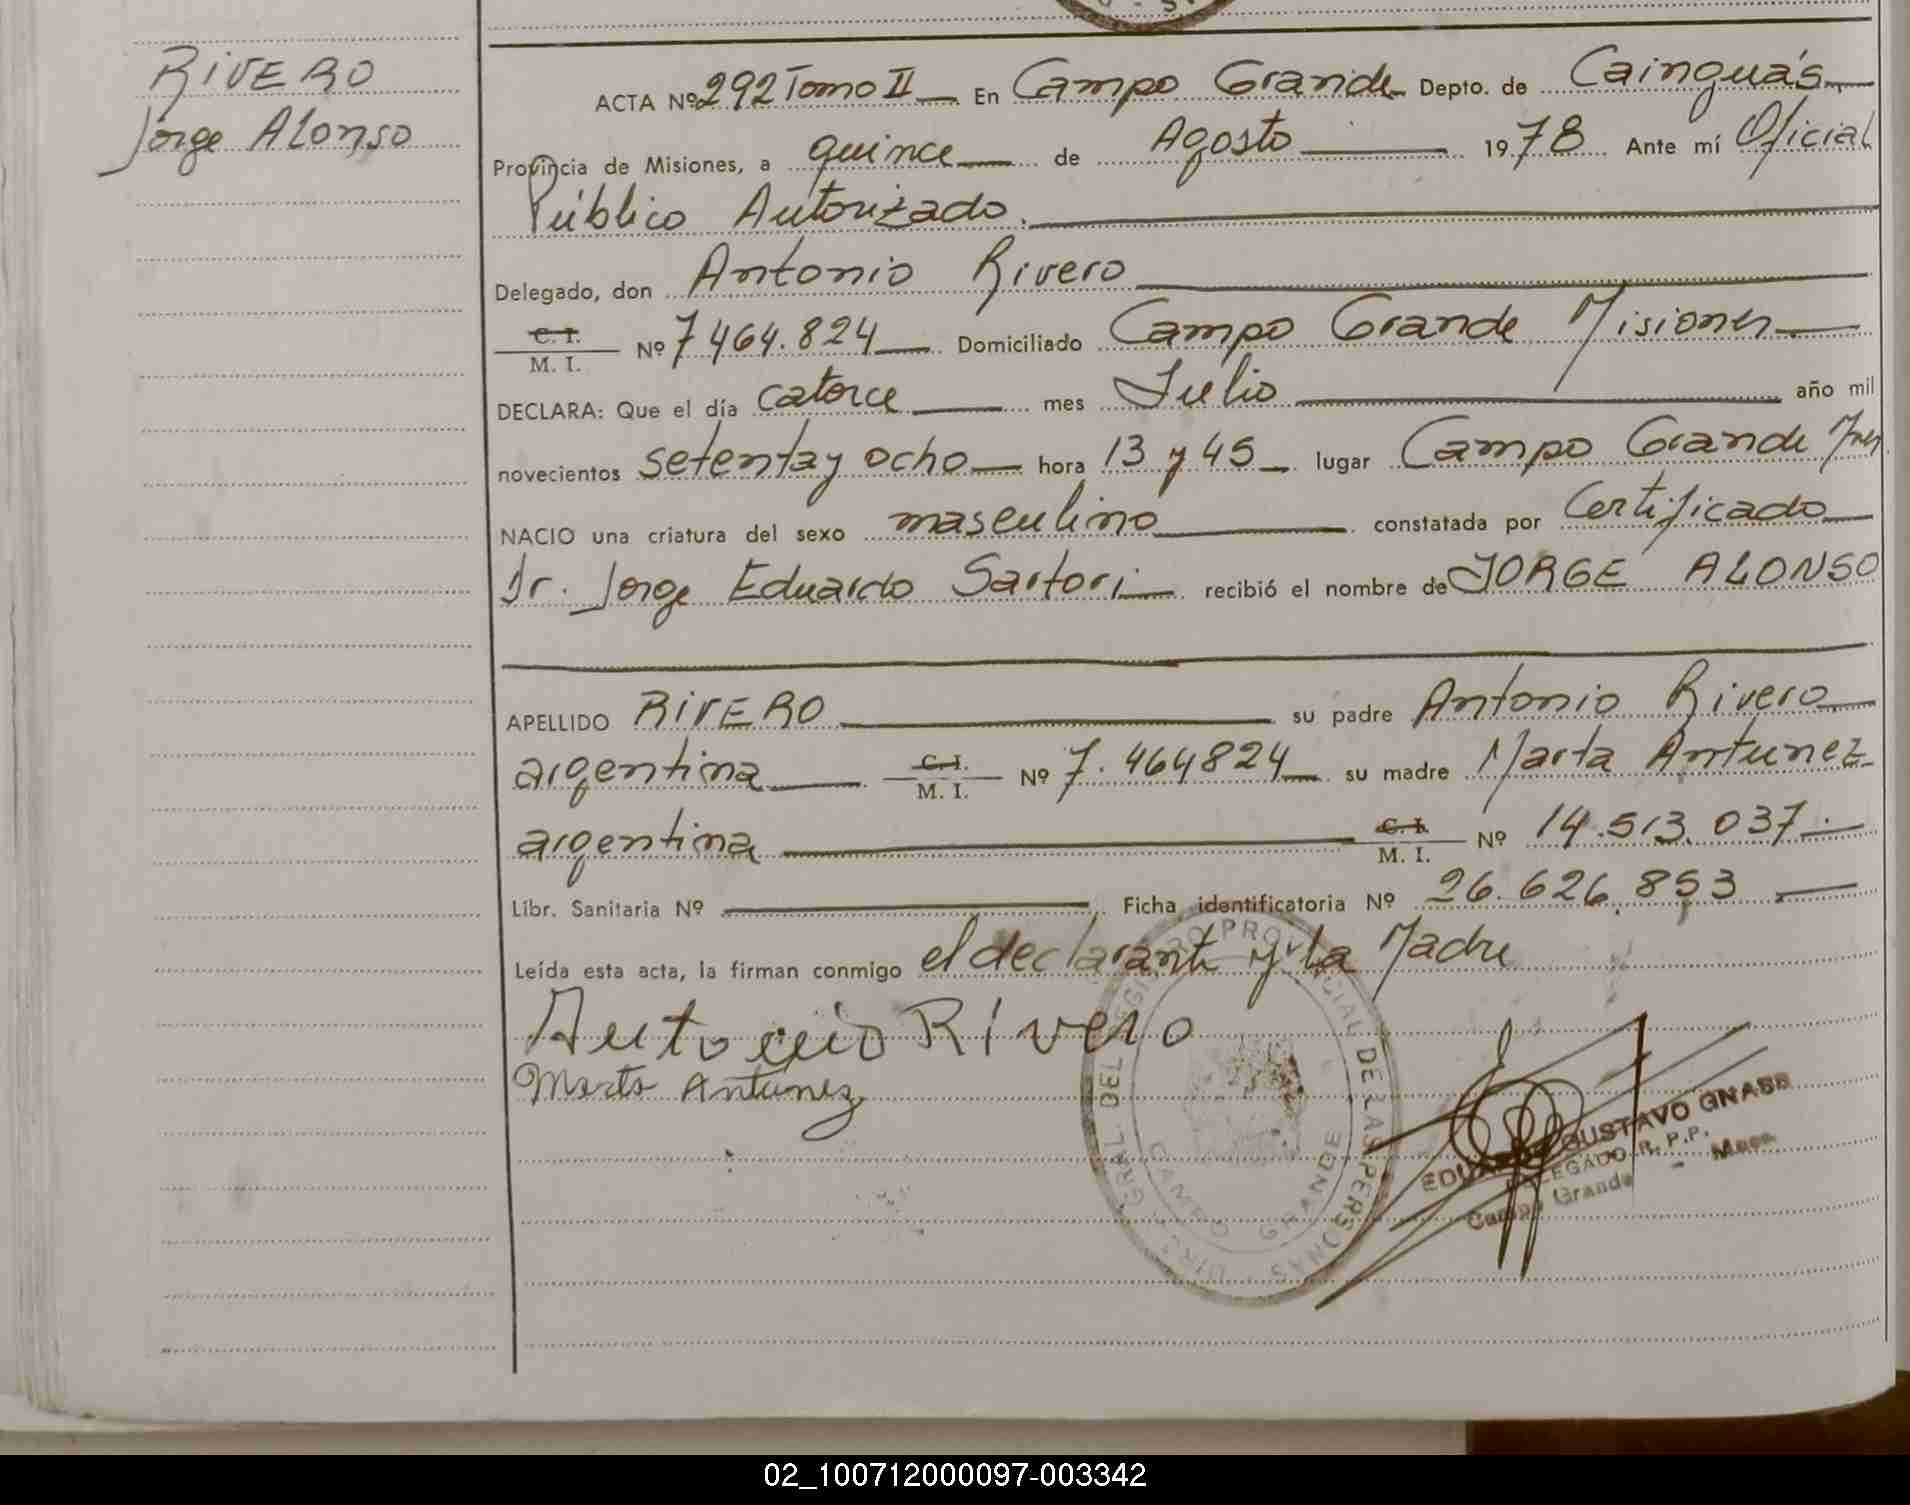 RIVERO
Jorge Alonso
ACTA Nº 292 Tomo II En Campo Grande Depto. de Cainguás
Provincia de Misiones, a quince de Agosto 1978 Ante mí Oficial
Público Autorizado.
Delegado, don Antonio Rivero
C. I.
M. I. Nº 7464.824 Domiciliado Campo Grande Misiones
DECLARA: Que el día catorce mes Julio año mil
novecientos setenta y ocho hora 13 y 45 lugar Campo Grande Mnes
NACIO una criatura del sexo masculino constatada por Certificado
Dr. Jorge Eduardo Sartori recibió el nombre de JORGE ALONSO
APELLIDO RIVERO su padre Antonio Rivero
argentina C. I. M. I. Nº 7.464824 su madre Marta Antunez
argentina C. I. M. I. Nº 14.513.037
Libr. Sanitaria Nº Ficha identificatoria Nº 26.626.853
Leída esta acta, la firman conmigo el declarante y la Madre
Antonio Rivero
Marta Antunez
DIR. GRAL. DEL REGISTRO PROVINCIAL DE LAS PERSONAS
CAMPO GRANDE
EDUARDO GUSTAVO GNASS
DELEGADO R. P. P.
Campo Grande - Mnes.
02_100712000097-003342